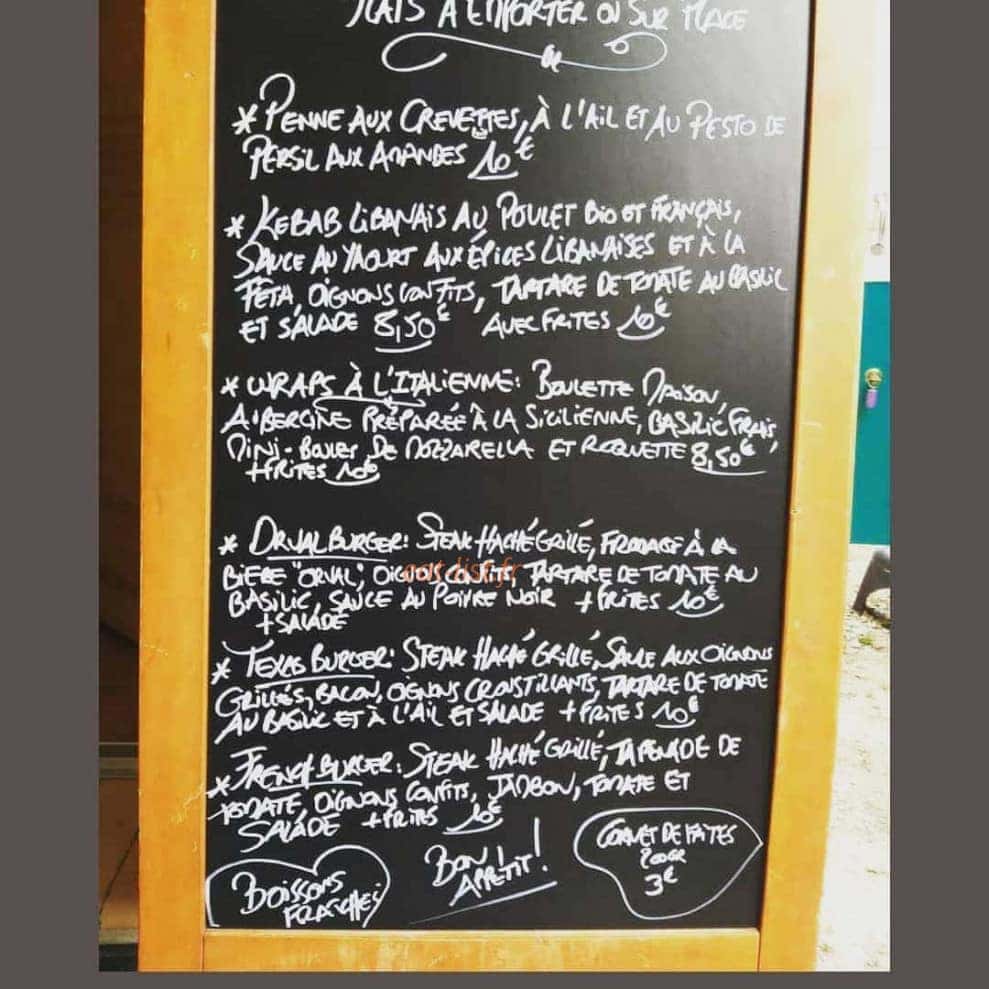 PLATS A EMPORTER OU SUR PLACE
* PENNE AUX CREVETTES, À L'AIL ET AU PESTO DE
PERSIL AUX AMANDES 10€
* KEBAB LIBANAIS AU POULET BIO ET FRANÇAIS,
SAUCE AU YAOURT AUX ÉPICES LIBANAISES ET À LA
FÉTA, OIGNONS CONFITS, TARTARE DE TOMATE AU BASILIC
ET SALADE 8,50€ AVEC FRITES 10€
* WRAPS À L'ITALIENNE: BOULETTE MAISON,
AUBERGINE PRÉPARÉE À LA SICILIENNE, BASILIC FRAIS,
MINI-BOULES DE MOZZARELLA ET ROQUETTE 8,50€
+FRITES 10€
* ORVAL BURGER: STEAK HACHÉ GRILLÉ, FROMAGE À LA
BIÈRE "ORVAL", OIGNONS CONFITS, TARTARE DE TOMATE AU
eat-list.fr
BASILIC, SAUCE AU POIVRE NOIR +FRITES 10€
+SALADE
* TEXAS BURGER: STEAK HACHÉ GRILLÉ, SAUCE AUX OIGNONS
GRILLÉS, BACON, OIGNONS CROUSTILLANTS, TARTARE DE TOMATE
AU BASILIC ET À L'AIL ET SALADE +FRITES 10€
* FRENCH BURGER: STEAK HACHÉ GRILLÉ, TAPENADE DE
TOMATE, OIGNONS CONFITS, JAMBON, TOMATE ET
SALADE +FRITES 10€
BOISSONS
FRAÎCHES
BON
APPÉTIT!
CORNET DE FRITES
200GR
3€